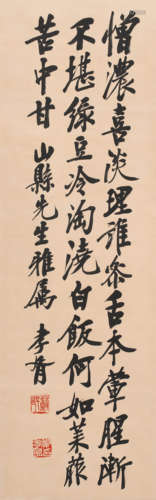 憎濃喜淡理誰參舌本葷腥漸
不堪綠豆冷淘澆白飯何如萊菔
苦中甘 山縣先生雅屬 孝胥